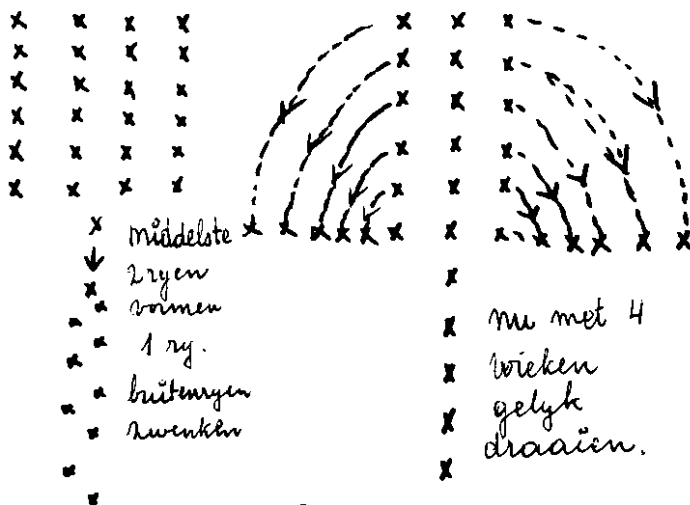 middelste
2 ryen
vormen
1 ry.
buitenryen
zwenken
nu met 4
wieken
gelyk
draaien.